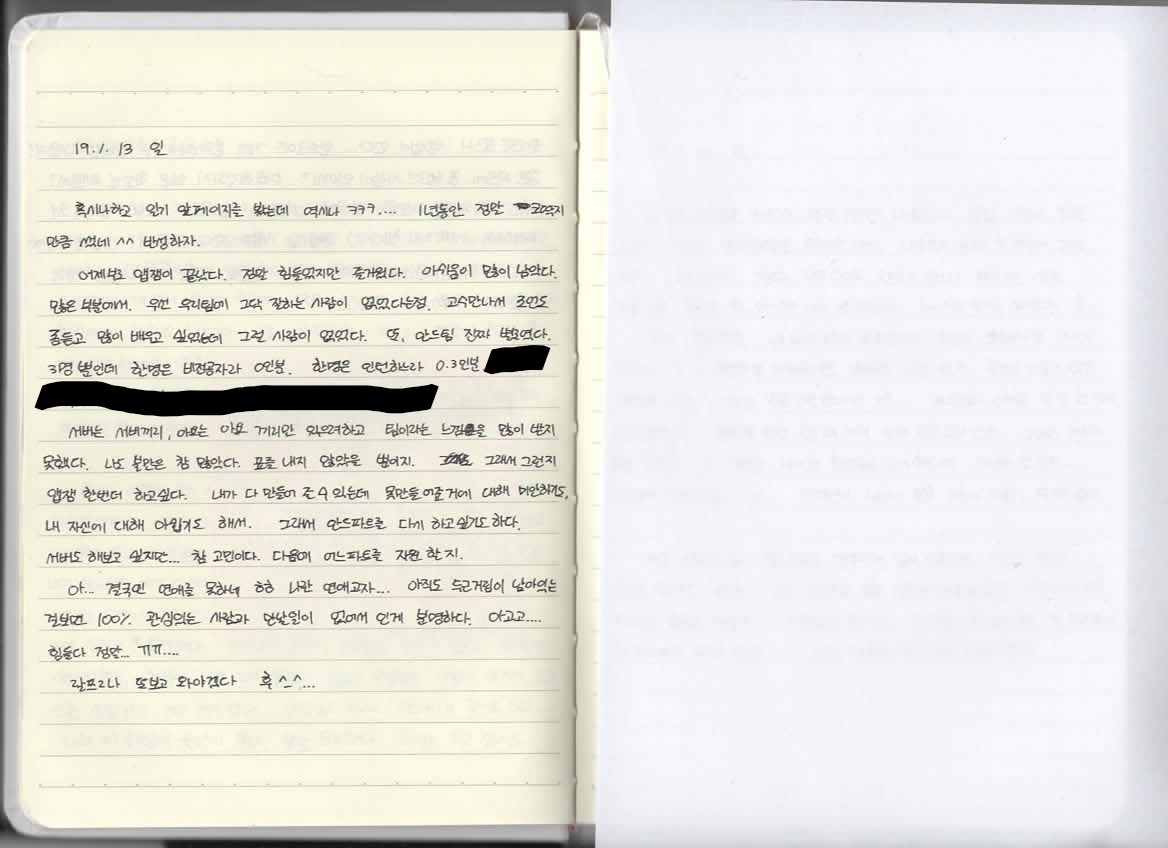 19. 1. 13 일
혹시나하고 일기 앞페이지를 봤는데 역시나 ㅋㅋㅋ.... 1년동안 정말 코딱지
만큼 썼네 ^^ 반성하자.
어제부로 앱잼이 끝났다. 정말 힘들었지만 즐거웠다. 아쉬움이 많이 남았다.
많은 부분에서. 우선 우리팀에 그닥 잘하는 사람이 없었다는점. 고수만나서
좀듣고 많이 배우고 싶었는데 그런 사람이 없었다. 또, 안드팀 진짜 별로였다.
3명뿐인데 한명은 비전공자라 0인분. 한명은 인턴하느라 0.3인분
서버는 서버끼리, 아요는 아요 끼리만 하고 팀이라는 느낌을 많이 받지
못했다. 나도 불만은 참 많았다. 표를 내지 않았을 뿐이지. 그래서 그런지
앱잼 한번더 하고싶다. 내가 다 만들어 줄 수 있는데 못만들어준거에 대해 미안하기도,
내 자신에 대해 아쉽기도 해서. 그래서 안드파트를 다시 하고싶기도 하다.
서버도 해보고 싶지만... 참 고민이다. 다음에 어느파트를 지원 할지.
아... 결국엔 연애를 못하네 ㅎㅎ 나란 연애고자... 아직도 두근거림이 남아있는
걸보면 100% 관심있는 사람과 만날일이 없어서 인게 분명하다. 아고고....
힘들다 정말... ㅠㅠ....
랄프2나 또보고 와야겠다 후 ^_^...